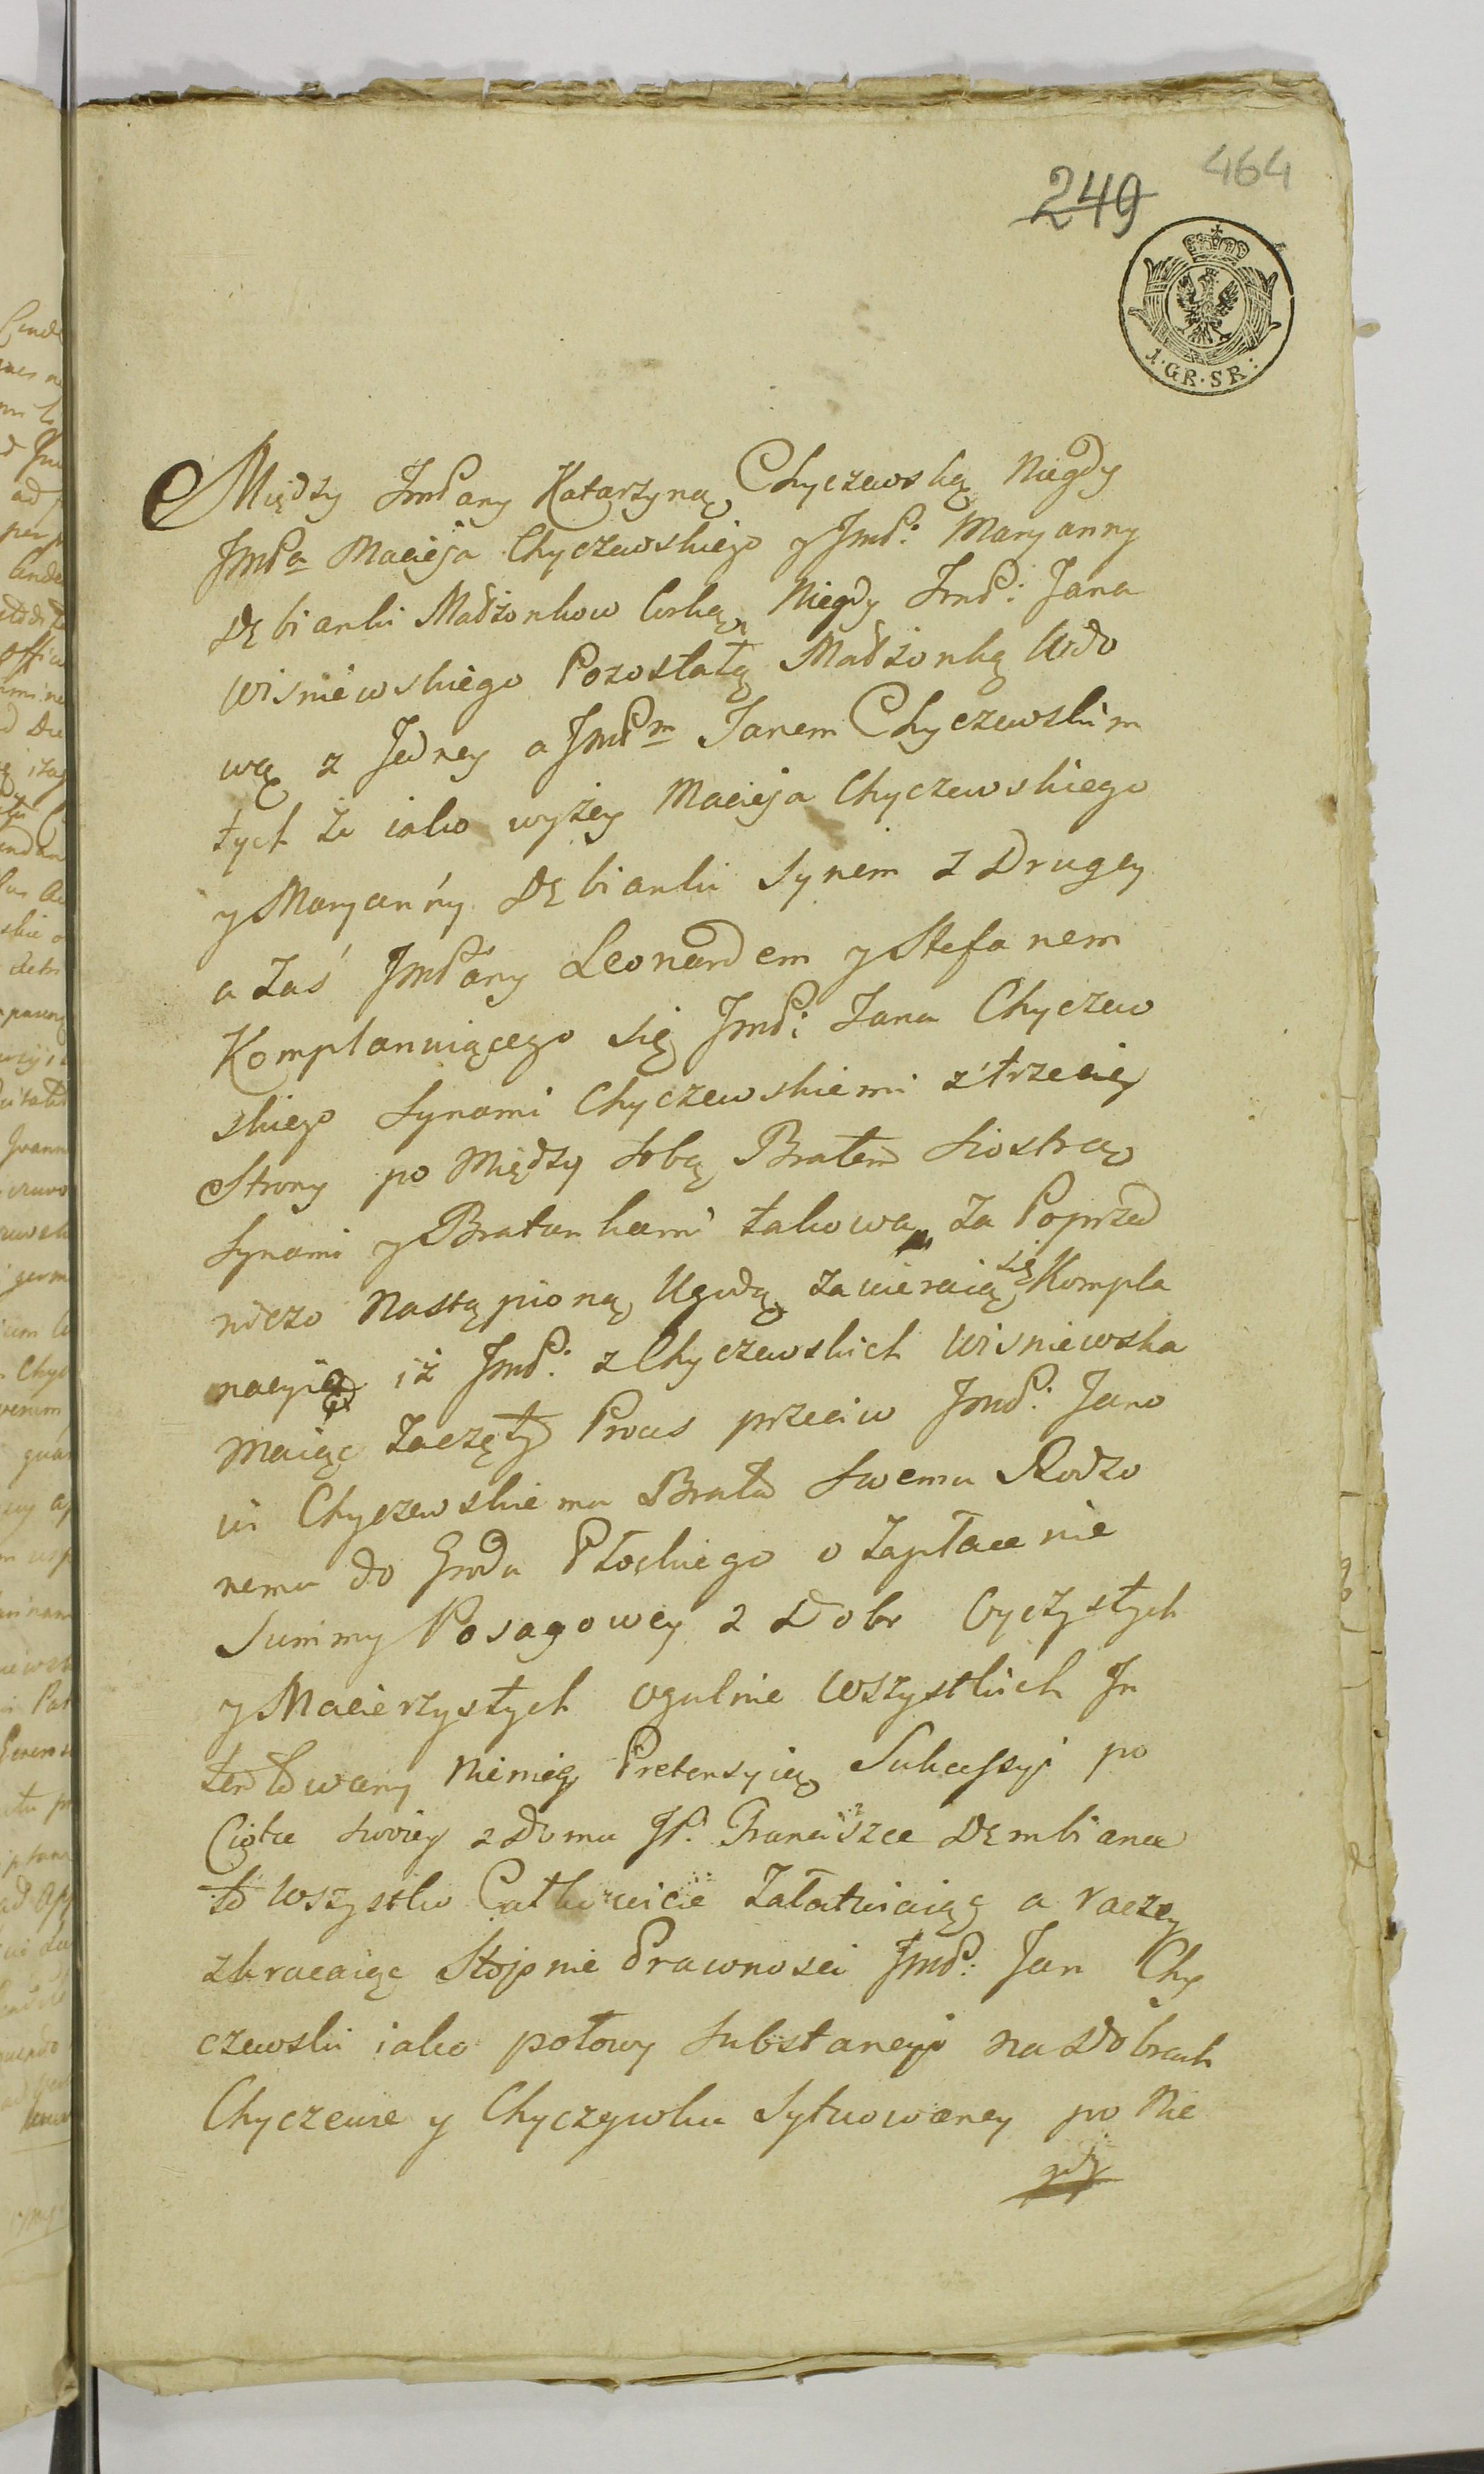 464
249
1·GR·SR:
Między ImPany Katarzyną Chyczewską Niegdy
ImPa Macieja Chyczewskiego y ImP: Maryanny
Dębianki Małżonkow Corką, Niegdy ImP: Jana
Wisniewskiego Pozostałą Małżonką Wdo
wą z Jedney a ImPm Janem Chyczewskim
tych że iako wyżey Macieja Chyczewskiego
y Maryanny Dębianki Synem z Drugey
a zaś ImPany Leonardem y Stefanem
Komplanuiącego się ImP: Jana Chyczew
skiego Synami Chyczewskiemi z trzeciey
Strony po między Sobą Bratem Siostrą
Synami y Bratankami takowa za Poprzed
niczo Nastąpioną Ugodą zawieraią się Kompla
nacyią iż ImP: z Chyczewskich Wisniewska
Maiąc Zaczęty Proces przeciw ImP: Jano
wi Chyczewskiemu Bratu Swemu Rodzo
nemu do Grodu Płockiego o Zapłacenie
Summy Posagowey z Dobr Oyczystych
y Macierzystych ogulnie Wszystkich In
tentowany Niemiey Pretensyią Sukcessyi po
Ciotce Swoiey z Domu JP. Franciszce Dembiance
to Wszystko Całkowicie Załatwiaiąc a raczey
zkracaiąc Stopnie Prawnosci ImP: Jan Chy
czewski iako połowy Substancyi na Dobrach
Chyczewie y Chyczywku Sytuowaney po Nie